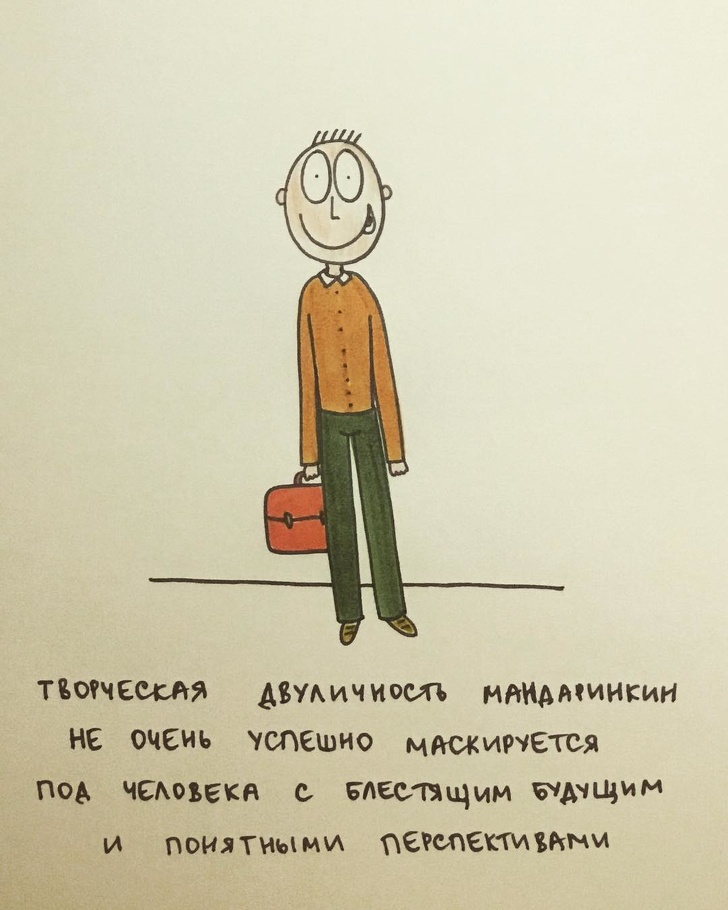 ТВОРЧЕСКАЯ ДВУЛИЧНОСТЬ МАНДАРИНКИН
НЕ ОЧЕНЬ УСПЕШНО МАСКИРУЕТСЯ
ПОД ЧЕЛОВЕКА С БЛЕСТЯЩИМ БУДУЩИМ
И ПОНЯТНЫМИ ПЕРСПЕКТИВАМИ